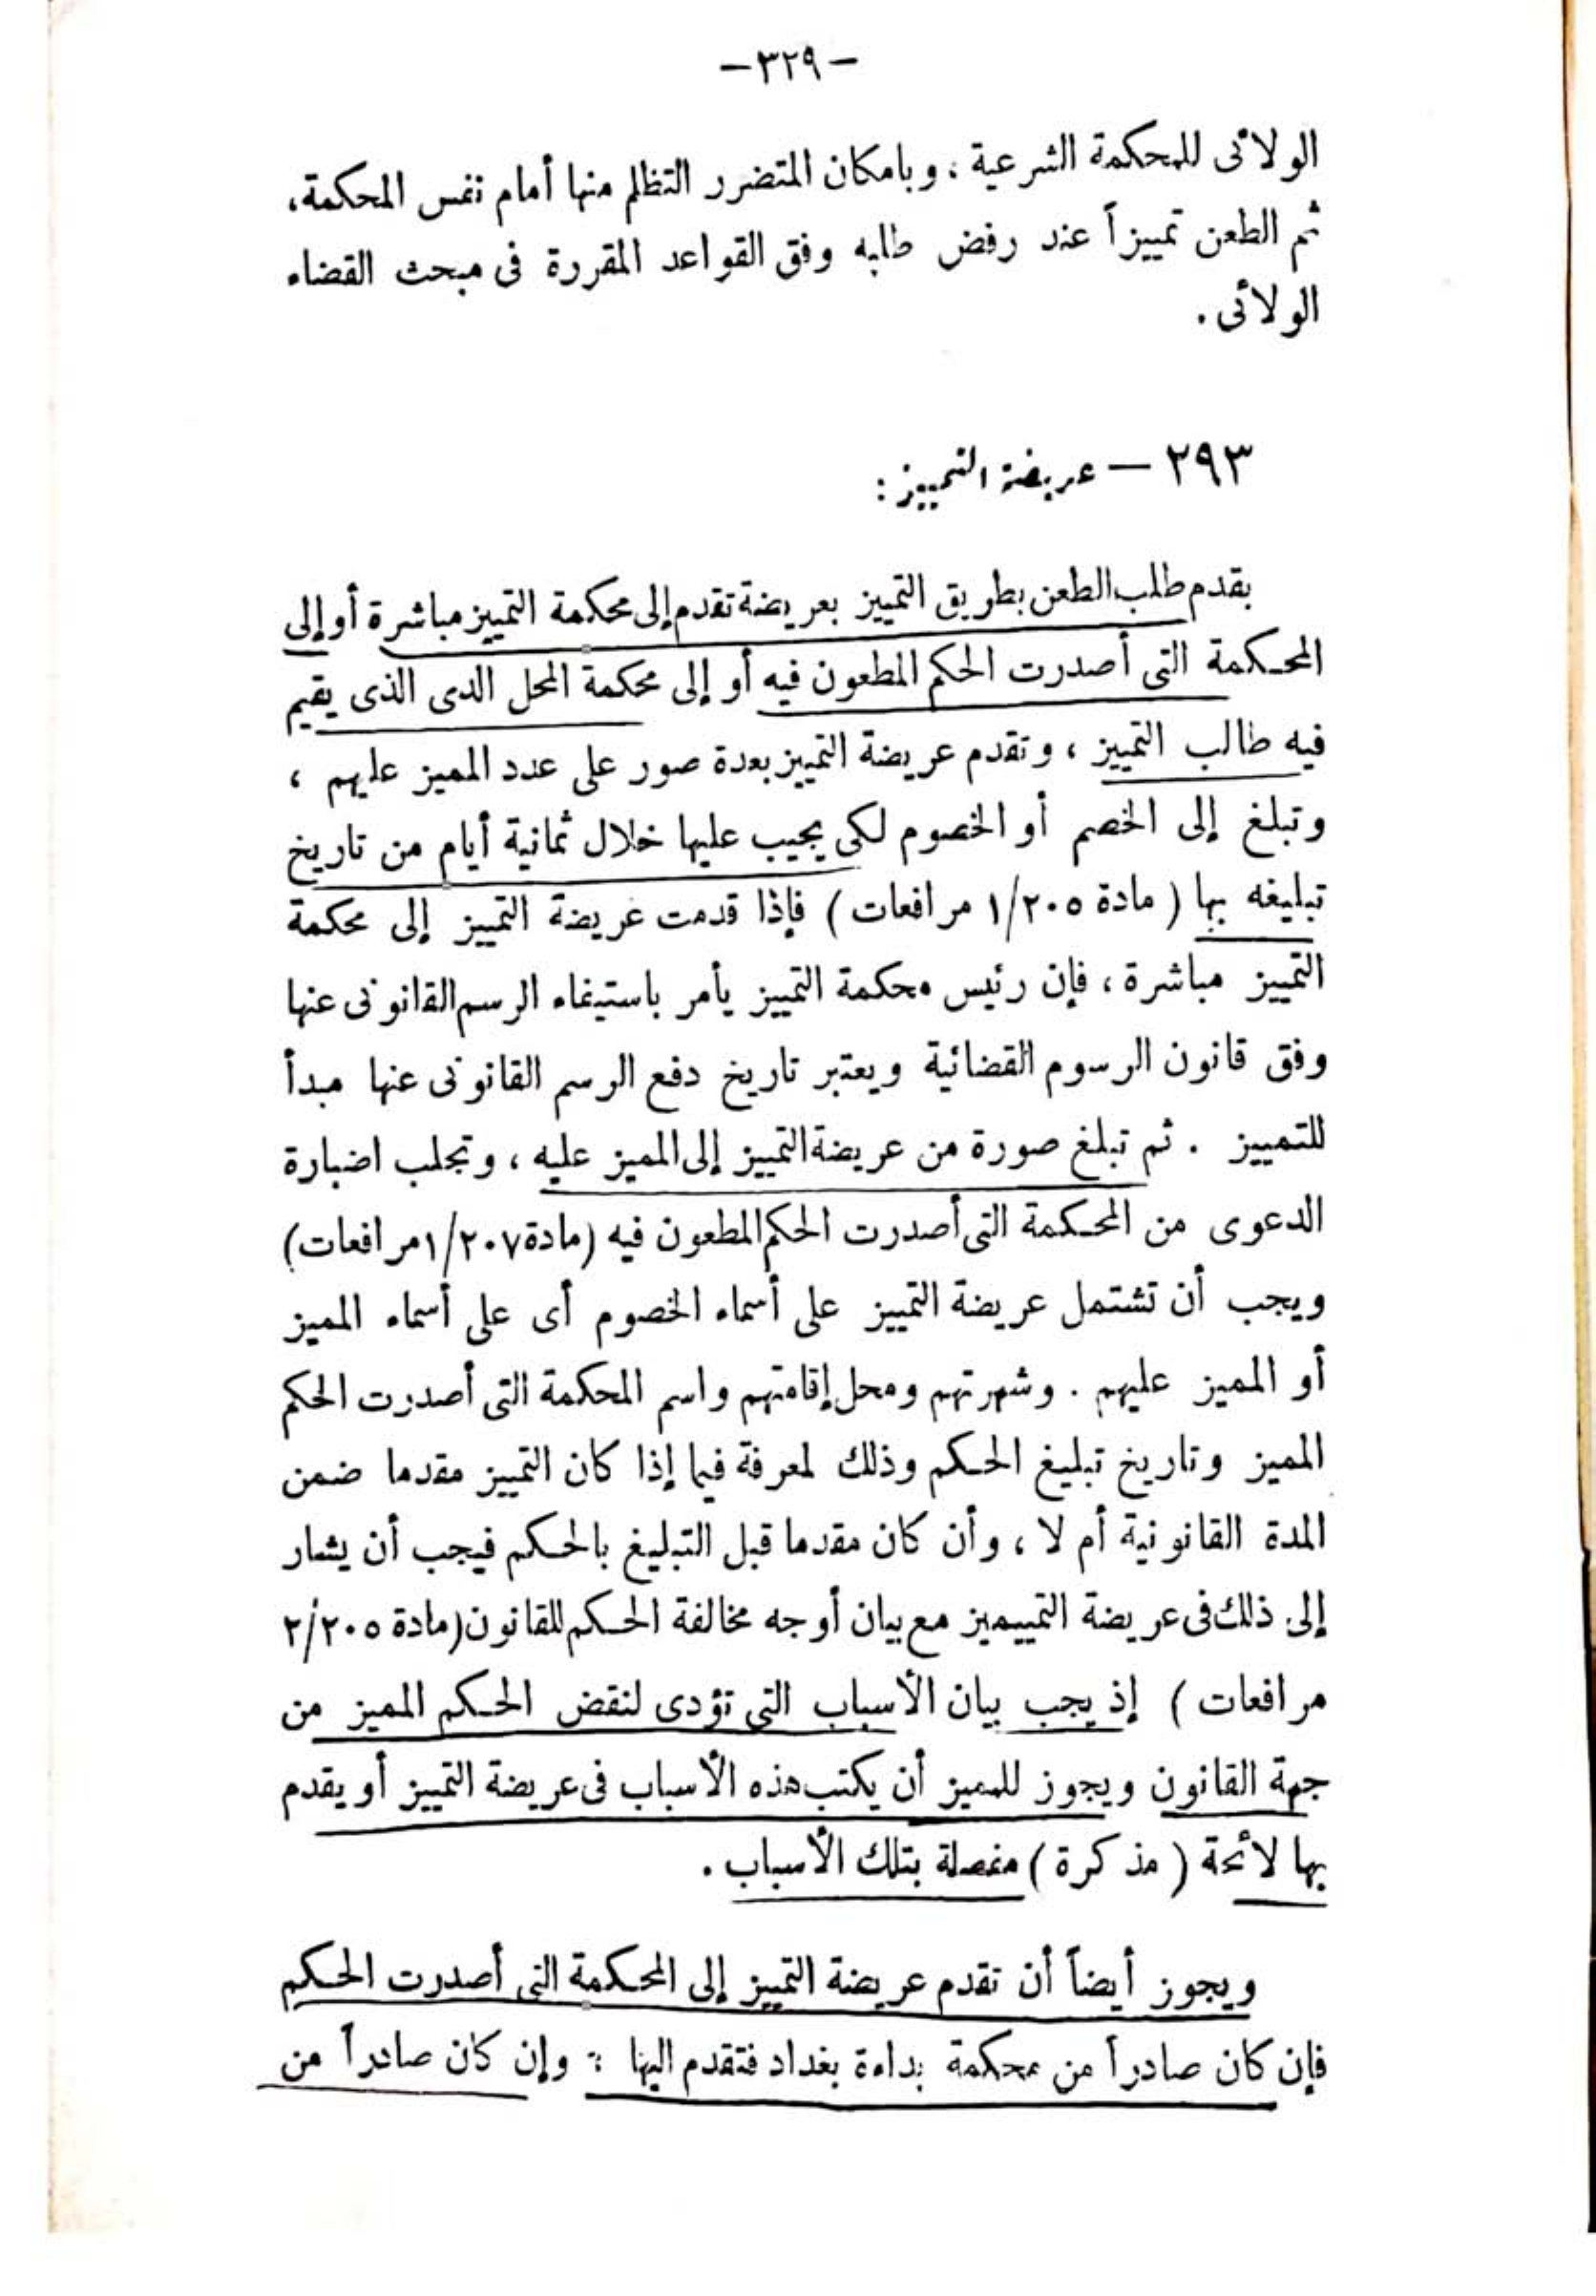 -٣٢٩-
الولائى للمحكمة الشرعية ، وبامكان المتضرر التظلم منها أمام نفس المحكمة،
ثم الطعن تمييزاً عند رفض طلبه وفق القواعد المقررة فى مبحث القضاء
الولائى .
٢٩٣ — عريضة التمييز :
يقدم طلب الطعن بطريق التمييز بعريضة تقدم إلى محكمة التمييز مباشرة أو إلى
المحكمة التى أصدرت الحكم المطعون فيه أو إلى محكمة المحل الذى الذى يقيم
فيه طالب التمييز ، وتقدم عريضة التمييز بعدة صور على عدد المميز عليهم ،
وتبلغ إلى الخصم أو الخصوم لكى يجيب عليها خلال ثمانية أيام من تاريخ
تبليغه بها ( مادة ١/٢٠٥ مرافعات ) فإذا قدمت عريضة التمييز إلى محكمة
التمييز مباشرة ، فإن رئيس محكمة التمييز يأمر باستيفاء الرسم القانونى عنها
وفق قانون الرسوم القضائية ويعتبر تاريخ دفع الرسم القانونى عنها مبدأ
للتمييز . ثم تبلغ صورة من عريضة التمييز إلى المميز عليه ، وتجلب اضبارة
الدعوى من المحكمة التى أصدرت الحكم المطعون فيه (مادة ١/٢٠٧ مرافعات)
ويجب أن تشتمل عريضة التمييز على أسماء الخصوم أى على أسماء المميز
أو المميز عليهم . وشهرتهم ومحل إقامتهم واسم المحكمة التى أصدرت الحكم
المميز وتاريخ تبليغ الحكم وذلك لمعرفة فيما إذا كان التمييز مقدما ضمن
المدة القانونية أم لا ، وأن كان مقدما قبل التبليغ بالحكم فيجب أن يشار
إلى ذلك فى عريضة التمييميز مع بيان أوجه مخالفة الحكم للقانون (مادة ٢/٢٠٥
مرافعات ) إذ يجب بيان الأسباب التى تؤدى لنقض الحكم المميز من
جهة القانون ويجوز للمميز أن يكتب هذه الأسباب فى عريضة التمييز أو يقدم
بها لائحة ( مذكرة ) مفصلة بتلك الأسباب .
ويجوز أيضاً أن تقدم عريضة التمييز إلى المحكمة التى أصدرت الحكم
فإن كان صادراً من محكمة بداءة بغداد فتقدم اليها ؛ وإن كان صادراً من